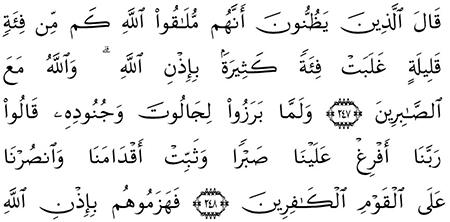 قَالَ ٱلَّذِينَ يَظُنُّونَ أَنَّهُم مُّلَٰقُوا۟ ٱللَّهِ كَم مِّن فِئَةٍ
قَلِيلَةٍ غَلَبَتْ فِئَةً كَثِيرَةًۢ بِإِذْنِ ٱللَّهِ ۗ وَٱللَّهُ مَعَ
ٱلصَّٰبِرِينَ ﴿٢٤٧﴾ وَلَمَّا بَرَزُوا۟ لِجَالُوتَ وَجُنُودِهِۦ قَالُوا۟
رَبَّنَآ أَفْرِغْ عَلَيْنَا صَبْرًا وَثَبِّتْ أَقْدَامَنَا وَٱنصُرْنَا
عَلَى ٱلْقَوْمِ ٱلْكَٰفِرِينَ ﴿٢٤٨﴾ فَهَزَمُوهُم بِإِذْنِ ٱللَّهِ